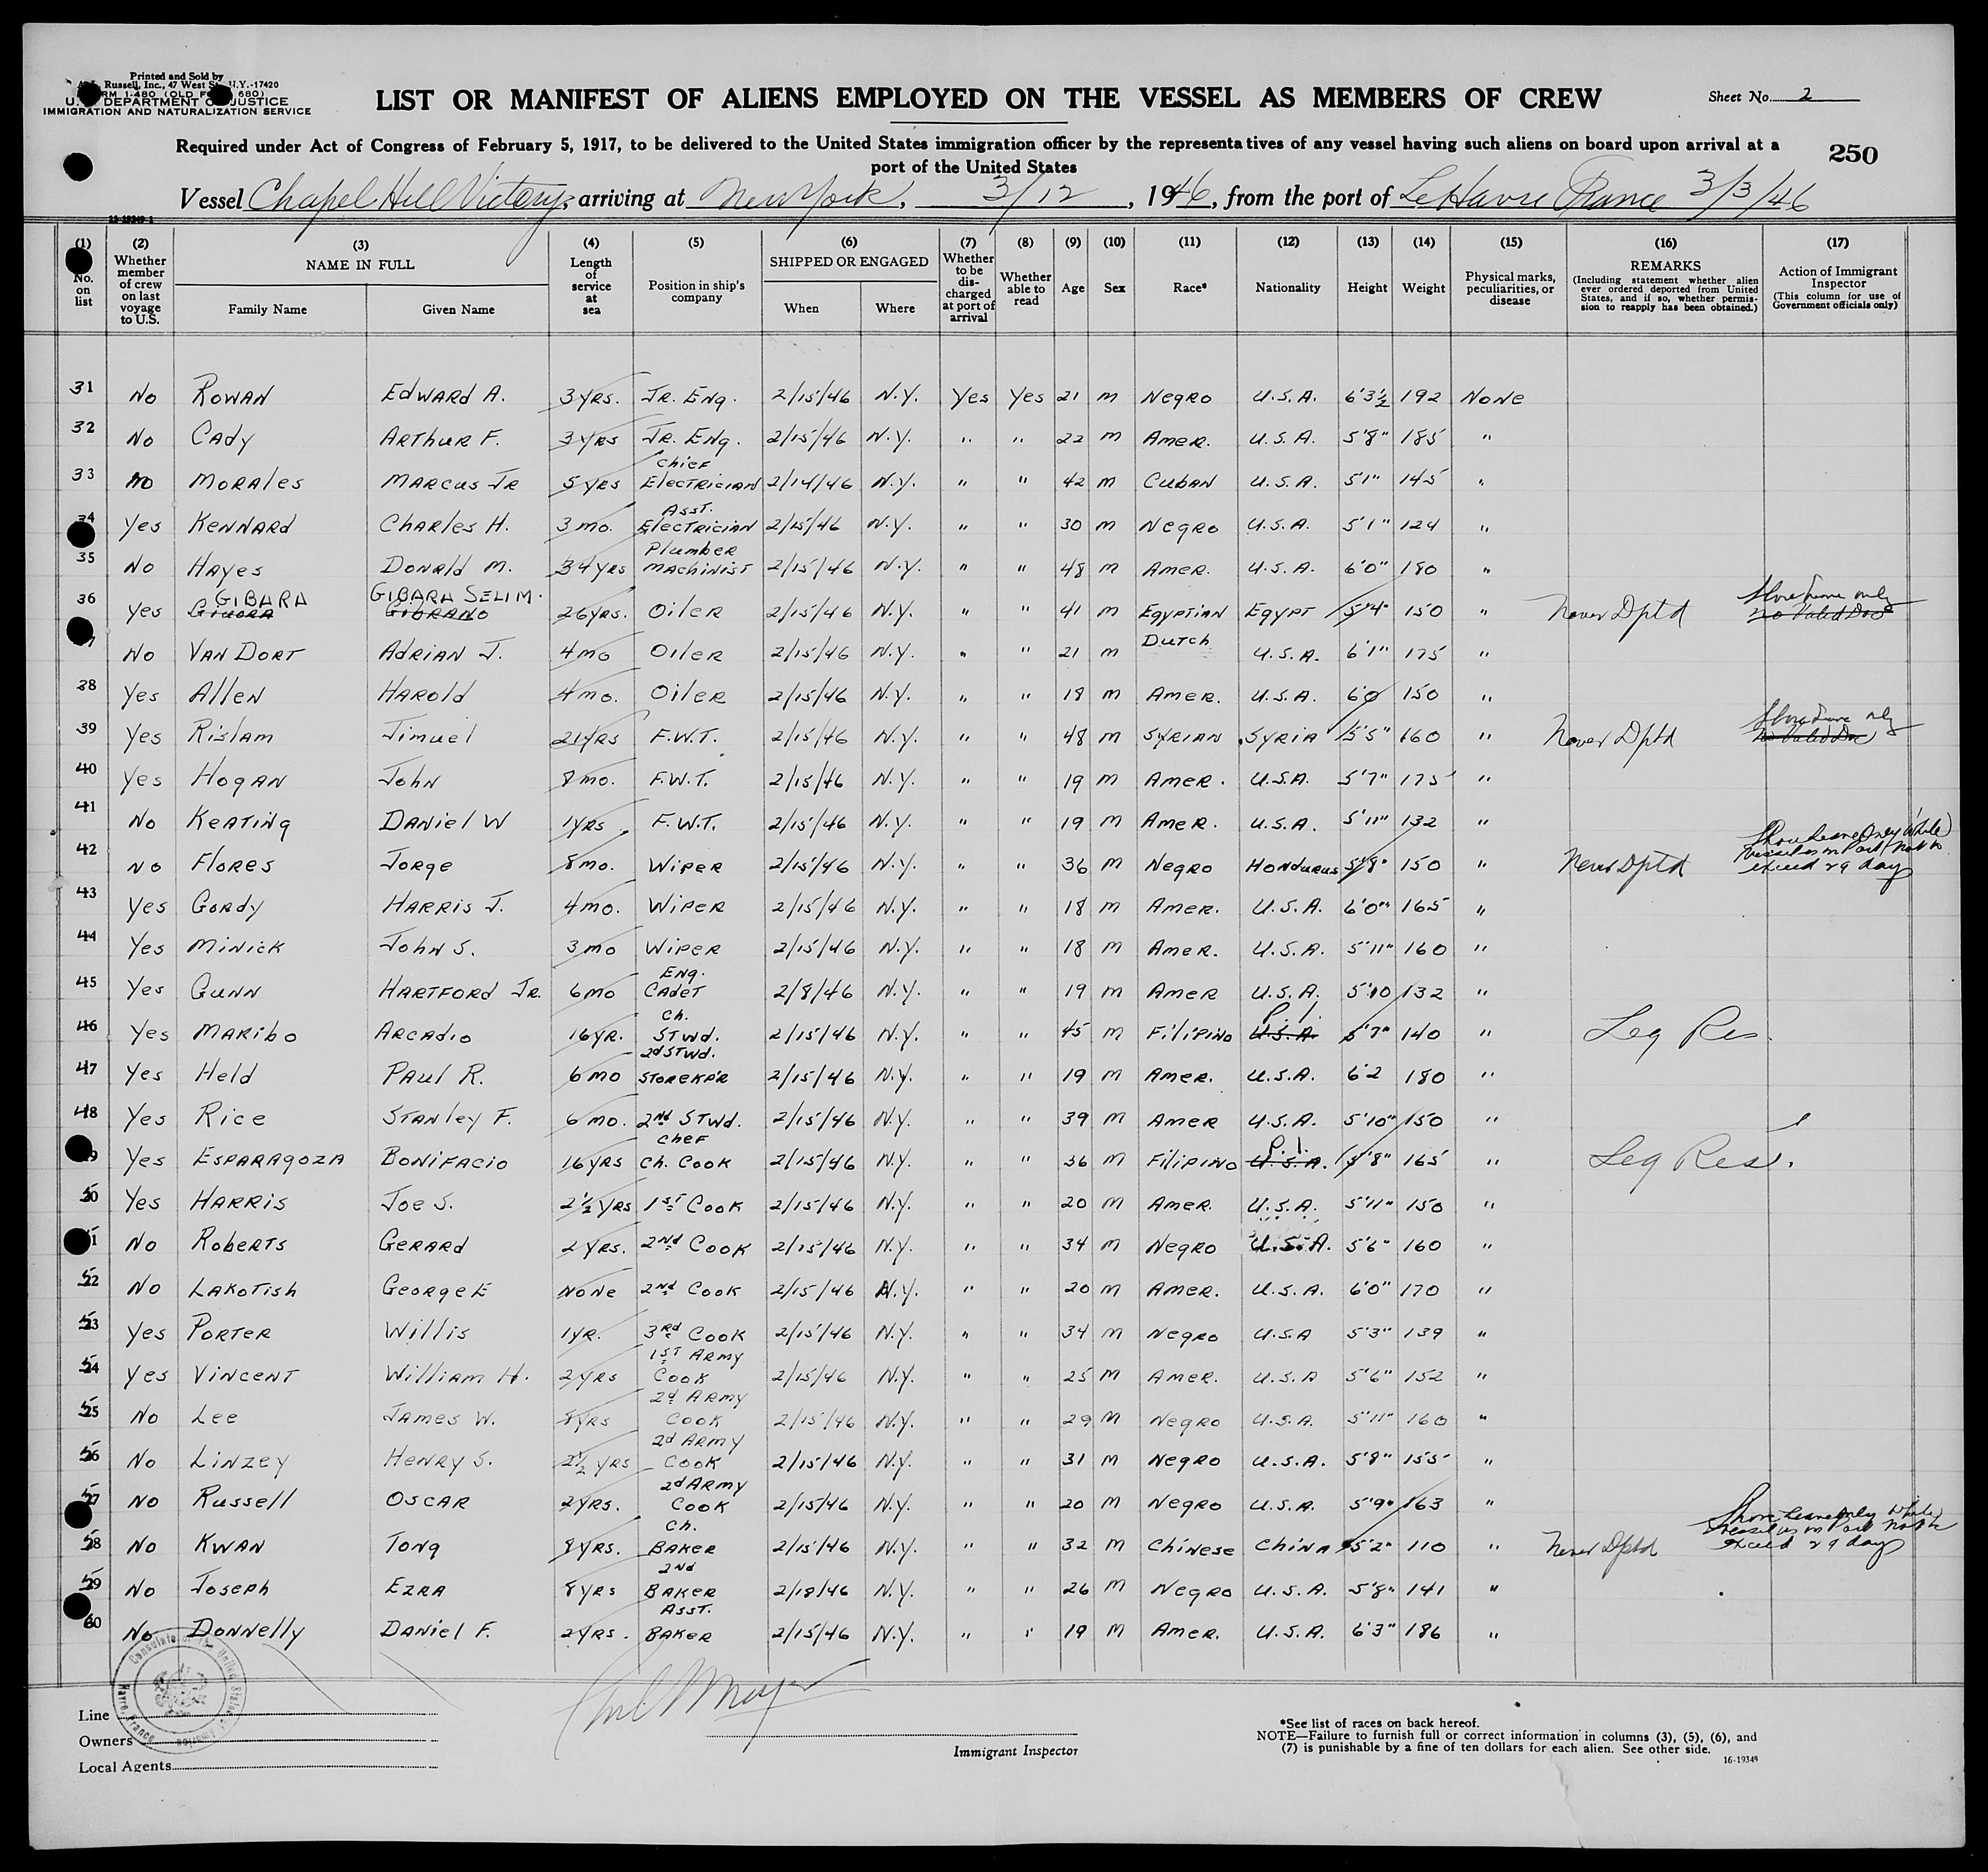 Printed and Sold by
Russell, Inc., 47 West St., N.Y.-17420
FORM 1-480 (OLD FORM 680)
U.S. DEPARTMENT OF JUSTICE
IMMIGRATION AND NATURALIZATION SERVICE
LIST OR MANIFEST OF ALIENS EMPLOYED ON THE VESSEL AS MEMBERS OF CREW
Sheet No. 2
Required under Act of Congress of February 5, 1917, to be delivered to the United States immigration officer by the representatives of any vessel having such aliens on board upon arrival at a
port of the United States
250
Vessel Chapel Hill Victory, arriving at New York, 3/12, 1946, from the port of LeHavre France 3/3/46
(1) No. on list
(2) Whether member of crew on last voyage to U.S.
(3) NAME IN FULL Family Name Given Name
(4) Length of service at sea
(5) Position in ship's company
(6) SHIPPED OR ENGAGED When Where
(7) Whether to be discharged at port of arrival
(8) Whether able to read
(9) Age
(10) Sex
(11) Race*
(12) Nationality
(13) Height
(14) Weight
(15) Physical marks, peculiarities, or disease
(16) REMARKS (Including statement whether alien ever ordered deported from United States, and if so, whether permission to reapply has been obtained.)
(17) Action of Immigrant Inspector (This column for use of Government officials only)
31 No Rowan Edward A. 3 yrs. Jr. Eng. 2/15/46 N.Y. Yes Yes 21 m Negro U.S.A. 6'3½ 192 None
32 No Cady Arthur F. 3 yrs Jr. Eng. 2/15/46 N.Y. " " 22 m Amer. U.S.A. 5'8" 185 "
33 No Morales Marcus Jr 5 yrs Chief Electrician 2/14/46 N.Y. " " 42 m Cuban U.S.A. 5'1" 145 "
34 Yes Kennard Charles H. 3 mo. Asst. Electrician 2/15/46 N.Y. " " 30 m Negro U.S.A. 5'1" 124 "
35 No Hayes Donald M. 34 yrs Plumber Machinist 2/15/46 N.Y. " " 48 m Amer. U.S.A. 6'0" 180 "
36 Yes GIBARA GIBARA SELIM. 26 yrs. Oiler 2/15/46 N.Y. " " 41 m Egyptian Egypt 5'4" 150 " Never Dptd Shore leave only No Valid Doc
37 No Van Dort Adrian J. 4 mo Oiler 2/15/46 N.Y. " " 21 m Dutch U.S.A. 6'1" 175 "
38 Yes Allen Harold 4 mo. Oiler 2/15/46 N.Y. " " 18 m Amer. U.S.A. 6'0 150 "
39 Yes Rislam Jimuel 21 yrs F.W.T. 2/15/46 N.Y. " " 48 m Syrian Syria 5'5" 160 " Never Dptd Shore leave only No Valid Doc
40 Yes Hogan John 8 mo. F.W.T. 2/15/46 N.Y. " " 19 m Amer. U.S.A. 5'7" 175 "
41 No Keating Daniel W 1 yrs F.W.T. 2/15/46 N.Y. " " 19 m Amer. U.S.A. 5'11" 132 "
42 No Flores Jorge 8 mo. Wiper 2/15/46 N.Y. " " 36 m Negro Hondurus 5'8" 150 " Never Dptd Shore leave Only While vessel is in Port Not to exceed 29 days
43 Yes Gordy Harris J. 4 mo. Wiper 2/15/46 N.Y. " " 18 m Amer. U.S.A. 6'0" 165 "
44 Yes Minick John S. 3 mo Wiper 2/15/46 N.Y. " " 18 m Amer. U.S.A. 5'11" 160 "
45 Yes Gunn Hartford Jr. 6 mo Eng. Cadet 2/8/46 N.Y. " " 19 m Amer U.S.A. 5'10 132 "
46 Yes Maribo Arcadio 16 yr. Ch. Stwd. 2/15/46 N.Y. " " 45 m Filipino U.S.A. P.I. 5'7" 140 " Leg Res.
47 Yes Held Paul R. 6 mo 2d Stwd. Storekp'r 2/15/46 N.Y. " " 19 m Amer. U.S.A. 6'2 180 "
48 Yes Rice Stanley F. 6 mo. 2nd Stwd. 2/15/46 N.Y. " " 39 m Amer U.S.A. 5'10" 150 "
49 Yes Esparagoza Bonifacio 16 yrs Chef Ch. Cook 2/15/46 N.Y. " " 36 m Filipino U.S.A. P.I. 5'8" 165 " Leg Res.
50 Yes Harris Joe S. 2½ yrs 1st Cook 2/15/46 N.Y. " " 20 m Amer. U.S.A. 5'11" 150 "
51 No Roberts Gerard 2 yrs. 2nd Cook 2/15/46 N.Y. " " 34 m Negro U.S.A. 5'6" 160 "
52 No Lakotish George E None 2nd Cook 2/15/46 N.Y. " " 20 m Amer. U.S.A. 6'0" 170 "
53 Yes Porter Willis 1 yr. 3rd Cook 2/15/46 N.Y. " " 34 m Negro U.S.A 5'3" 139 "
54 Yes Vincent William H. 2 yrs 1st Army Cook 2/15/46 N.Y. " " 25 m Amer. U.S.A 5'6" 152 "
55 No Lee James W. 8 yrs 2d Army Cook 2/15/46 N.Y. " " 29 m Negro U.S.A. 5'11" 160 "
56 No Linzey Henry S. 2½ yrs 2d Army Cook 2/15/46 N.Y. " " 31 m Negro U.S.A. 5'8" 155 "
57 No Russell Oscar 2 yrs. 2d Army Cook 2/15/46 N.Y. " " 20 m Negro U.S.A. 5'9" 163 "
58 No Kwan Tong 8 yrs. Ch. Baker 2/15/46 N.Y. " " 32 m Chinese China 5'2" 110 " Never Dptd Shore leave only While vessel is in Port Not to exceed 29 days
59 No Joseph Ezra 8 yrs 2nd Baker 2/18/46 N.Y. " " 26 m Negro U.S.A. 5'8" 141 "
60 No Donnelly Daniel F. 2 yrs. Asst. Baker 2/15/46 N.Y. " " 19 m Amer. U.S.A. 6'3" 186 "
Line
Owners
Local Agents
Immigrant Inspector
*See list of races on back hereof.
NOTE—Failure to furnish full or correct information in columns (3), (5), (6), and
(7) is punishable by a fine of ten dollars for each alien. See other side.
16-19349